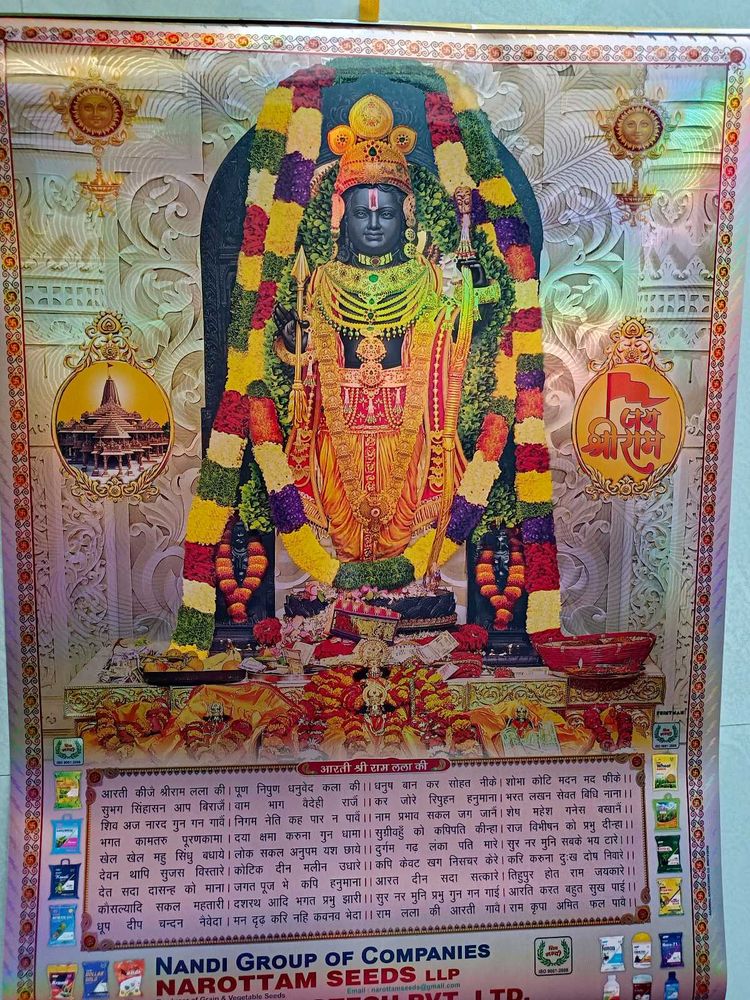 जय
श्रीराम
आरती श्री राम लला की
आरती कीजे श्रीराम लला की। पूण निपुण धनुवेद कला की।। धनुष बान कर सोहत नीके। शोभा कोटि मदन मद फीके।।
सुभग सिंहासन आप बिराजैं। वाम भाग वैदेही राजैं।। कर जोरे रिपुहन हनुमाना। भरत लखन सेवत बिधि नाना।।
शिव अज नारद गुन गन गावैं। निगम नेति कह पार न पावैं।। नाम प्रभाव सकल जग जानैं। शेष महेश गनेस बखानैं।।
भगत कामतरु पूरणकामा। दया क्षमा करुना गुन धामा।। सुग्रीवहुँ को कपिपति कीन्हा। राज विभीषन को प्रभु दीन्हा।।
खेल खेल महु सिंधु बधाये। लोक सकल अनुपम यश छाये।। दुर्गम गढ़ लंका पति मारे। सुर नर मुनि सबके भय टारे।।
देवन थापि सुजस विस्तारे। कोटिक दीन मलीन उधारे।। कपि केवट खग निसचर केरे। करि करुना दुःख दोष निवारे।।
देत सदा दासन्ह को माना। जगत पूज भे कपि हनुमाना।। आरत दीन सदा सत्कारे। तिहुपुर होत राम जयकारे।।
कौसल्यादि सकल महतारी। दशरथ आदि भगत प्रभु झारी।। सुर नर मुनि प्रभु गुन गन गाई। आरति करत बहुत सुख पाई।।
धूप दीप चन्दन नैवेदा। मन दृढ़ करि नहि कवनव भेदा।। राम लला की आरती गावै। राम कृपा अमित फल पावै।।
ISO 9001-2008
ISO 9001-2008
NANDI GROUP OF COMPANIES
NAROTTAM SEEDS LLP
Email : narottamseeds@gmail.com
of Grain & Vegetable Seeds
PVT. LTD.
ISO 9001-2008